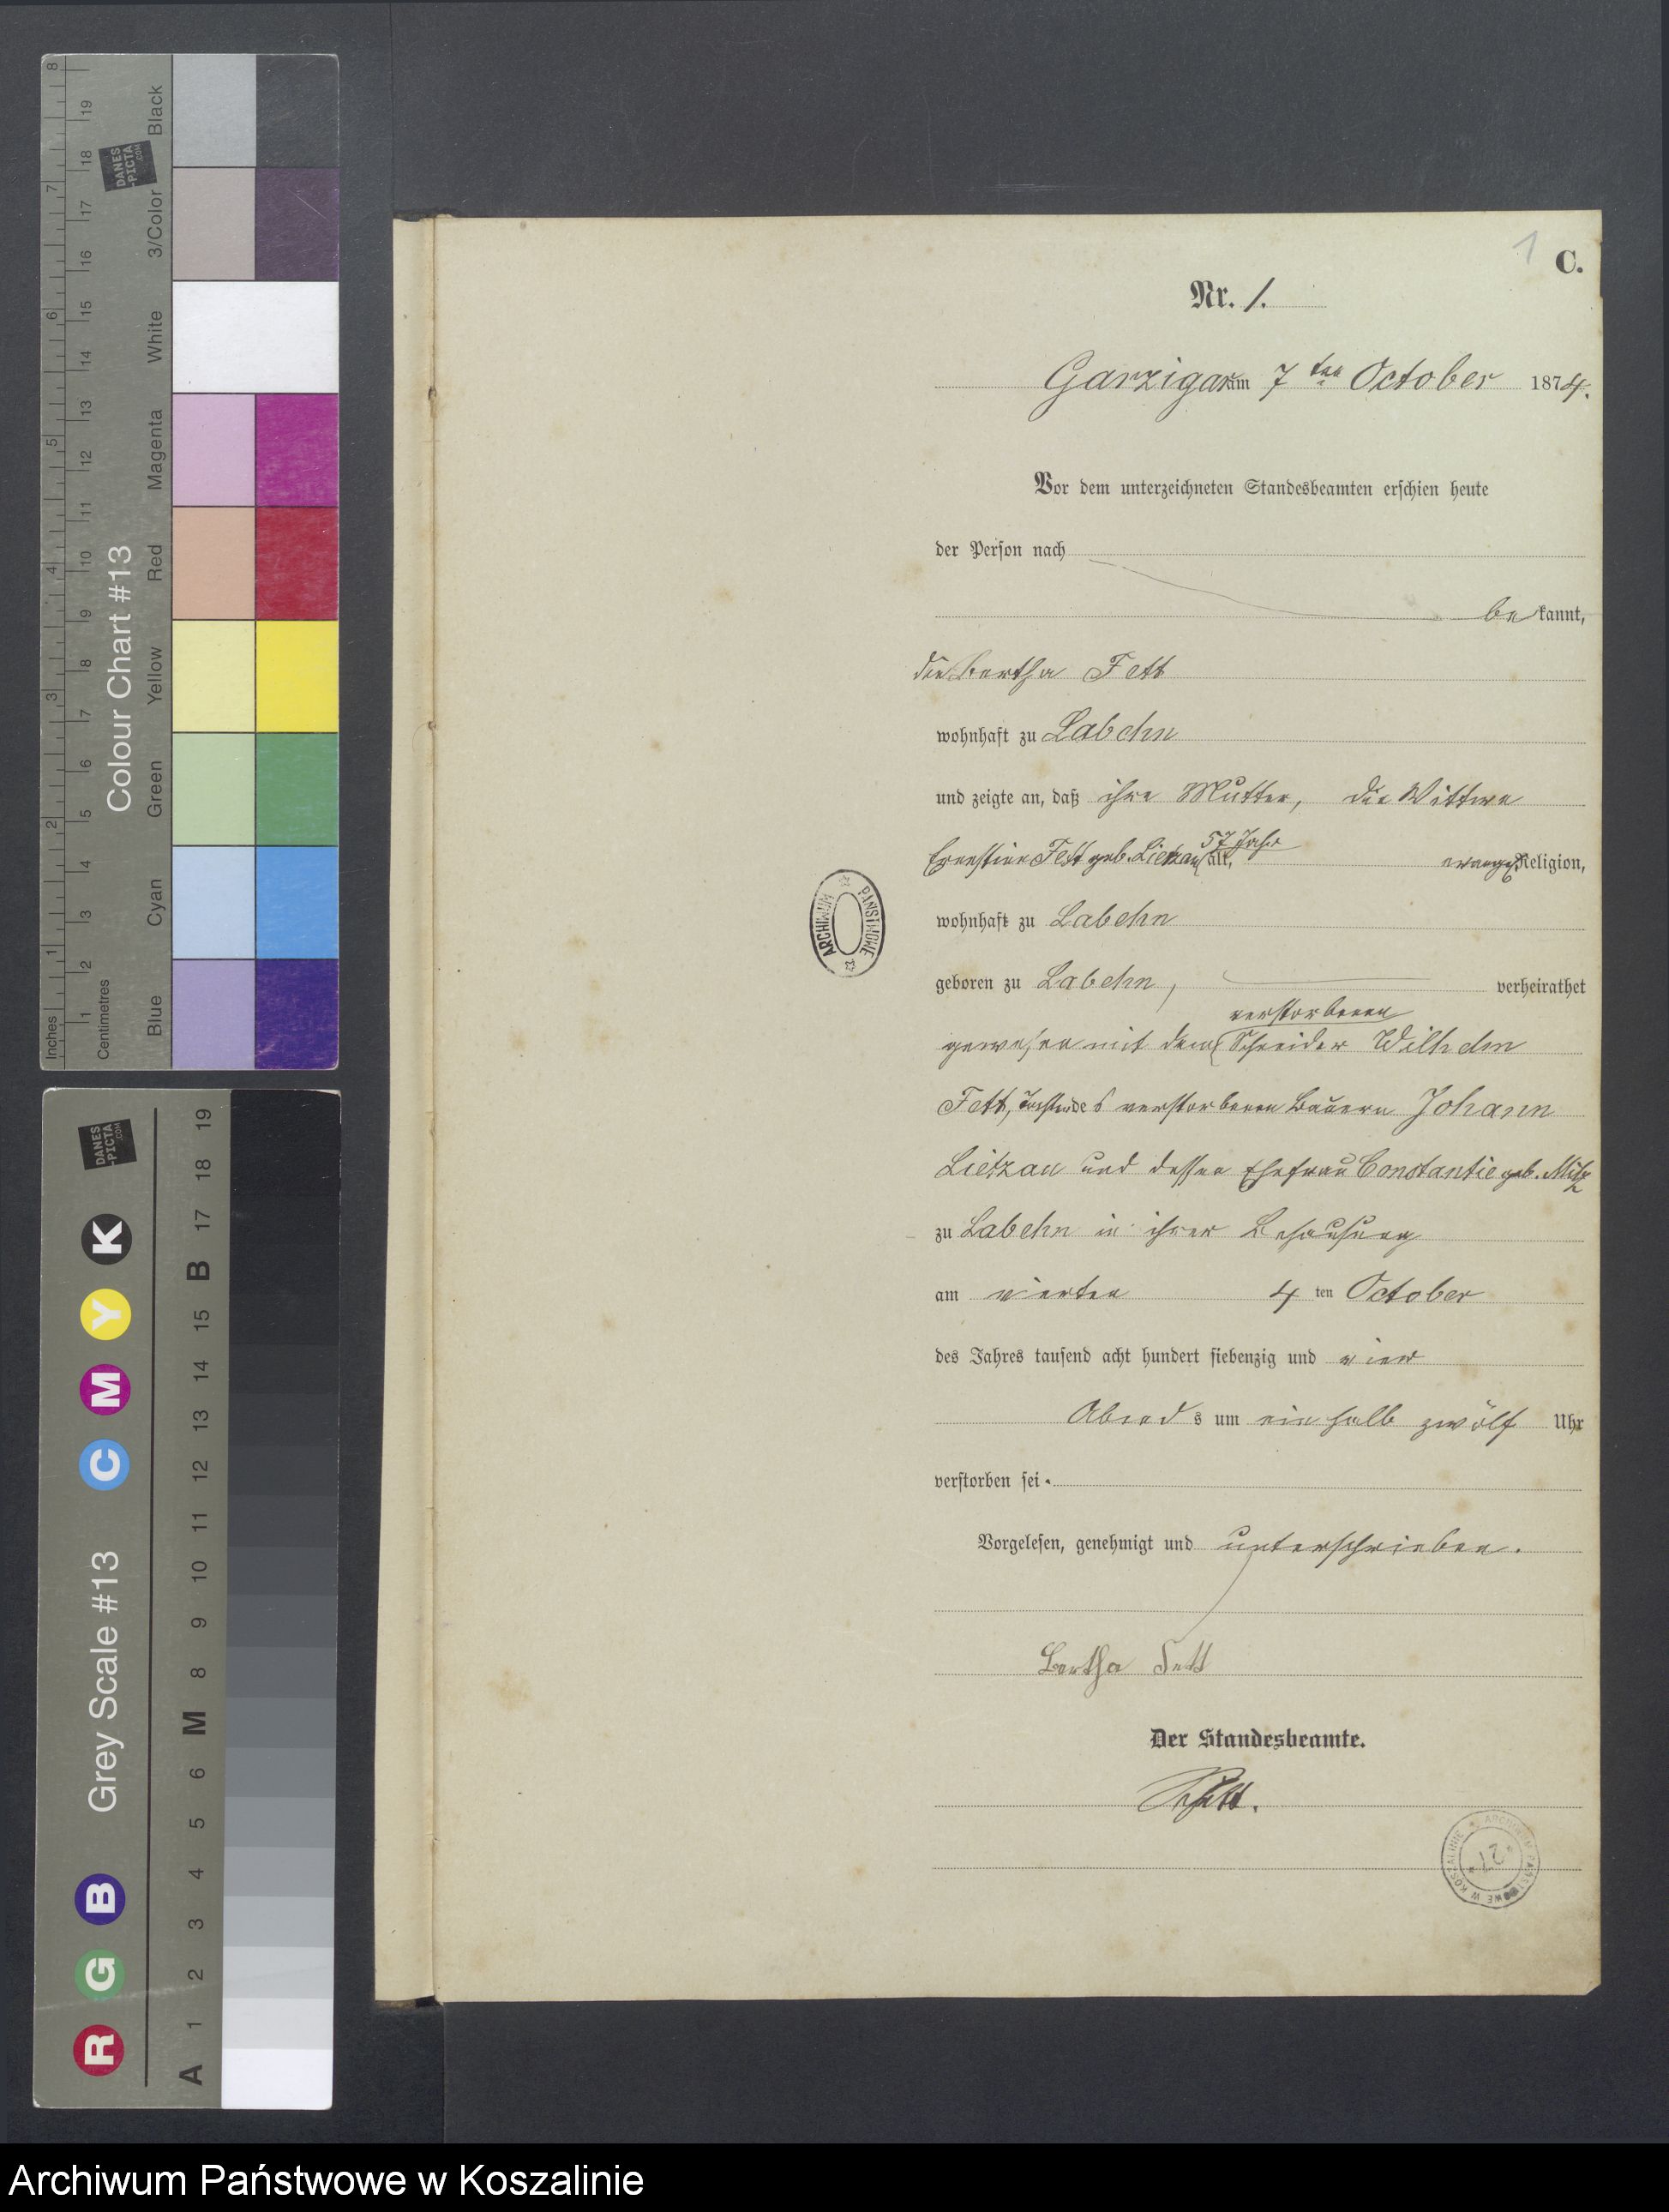 1
C.
Nr. 1.
Garzigar am 7 ten October 1874.
Vor dem unterzeichneten Standesbeamten erschien heute
der Person nach
bekannt,
die Bertha Fett
wohnhaft zu Labehn
und zeigte an, daß ihre Mutter, die Wittwe
57 Jahr
Ernestine Fett geb. Lietzau alt, evangel. Religion,
wohnhaft zu Labehn
geboren zu Labehn, verheirathet
verstorbenen
gewesen mit dem Schneider Wilhelm
Fett, des verstorbenen Bauern Johann
Lietzau und dessen Ehefrau Constantie geb.
zu Labehn in ihrer Behausung
am vierten 4 ten October
des Jahres tausend acht hundert siebenzig und vier
Abends um ein halb zwölf Uhr
verstorben sei.
Vorgelesen, genehmigt und unterschrieben.
Bertha Fett
Der Standesbeamte.
ARCHIWUM PAŃSTWOWE
ARCHIWUM PAŃSTWOWE W KOSZALINIE
Colour Chart #13
DANES-PICTA.COM
Inches 1 2 3 4 5 6 7 8
Centimetres 1 2 3 4 5 6 7 8 9 10 11 12 13 14 15 16 17 18 19
Blue Cyan Green Yellow Red Magenta White 3/Color Black
Grey Scale #13
DANES-PICTA.COM
R G B C M Y K
A 1 2 3 4 5 6 M 8 9 10 11 12 13 14 15 B 17 18 19
Archiwum Państwowe w Koszalinie